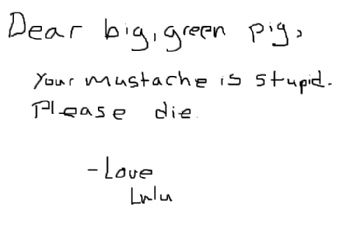 Dear big, green pig,
Your mustache is stupid.
Please die.
- Love
Lulu